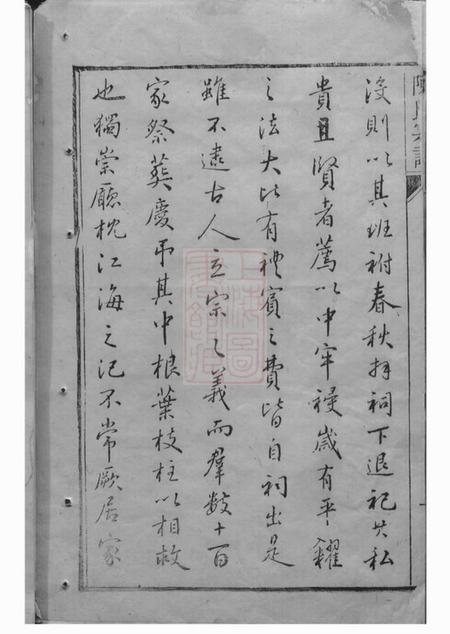 陳氏宗譜
沒則以其班祔春秋拜祠下退祀其私
貴且賢者薦以中牢祲歲有平糶
之法大比有禮賓之費皆自祠出是
雖不逮古人立宗之義而羣數十百
家祭葬慶弔其中根葉枝柱以相救
也獨崇廳枕江海之汜不常厥居家